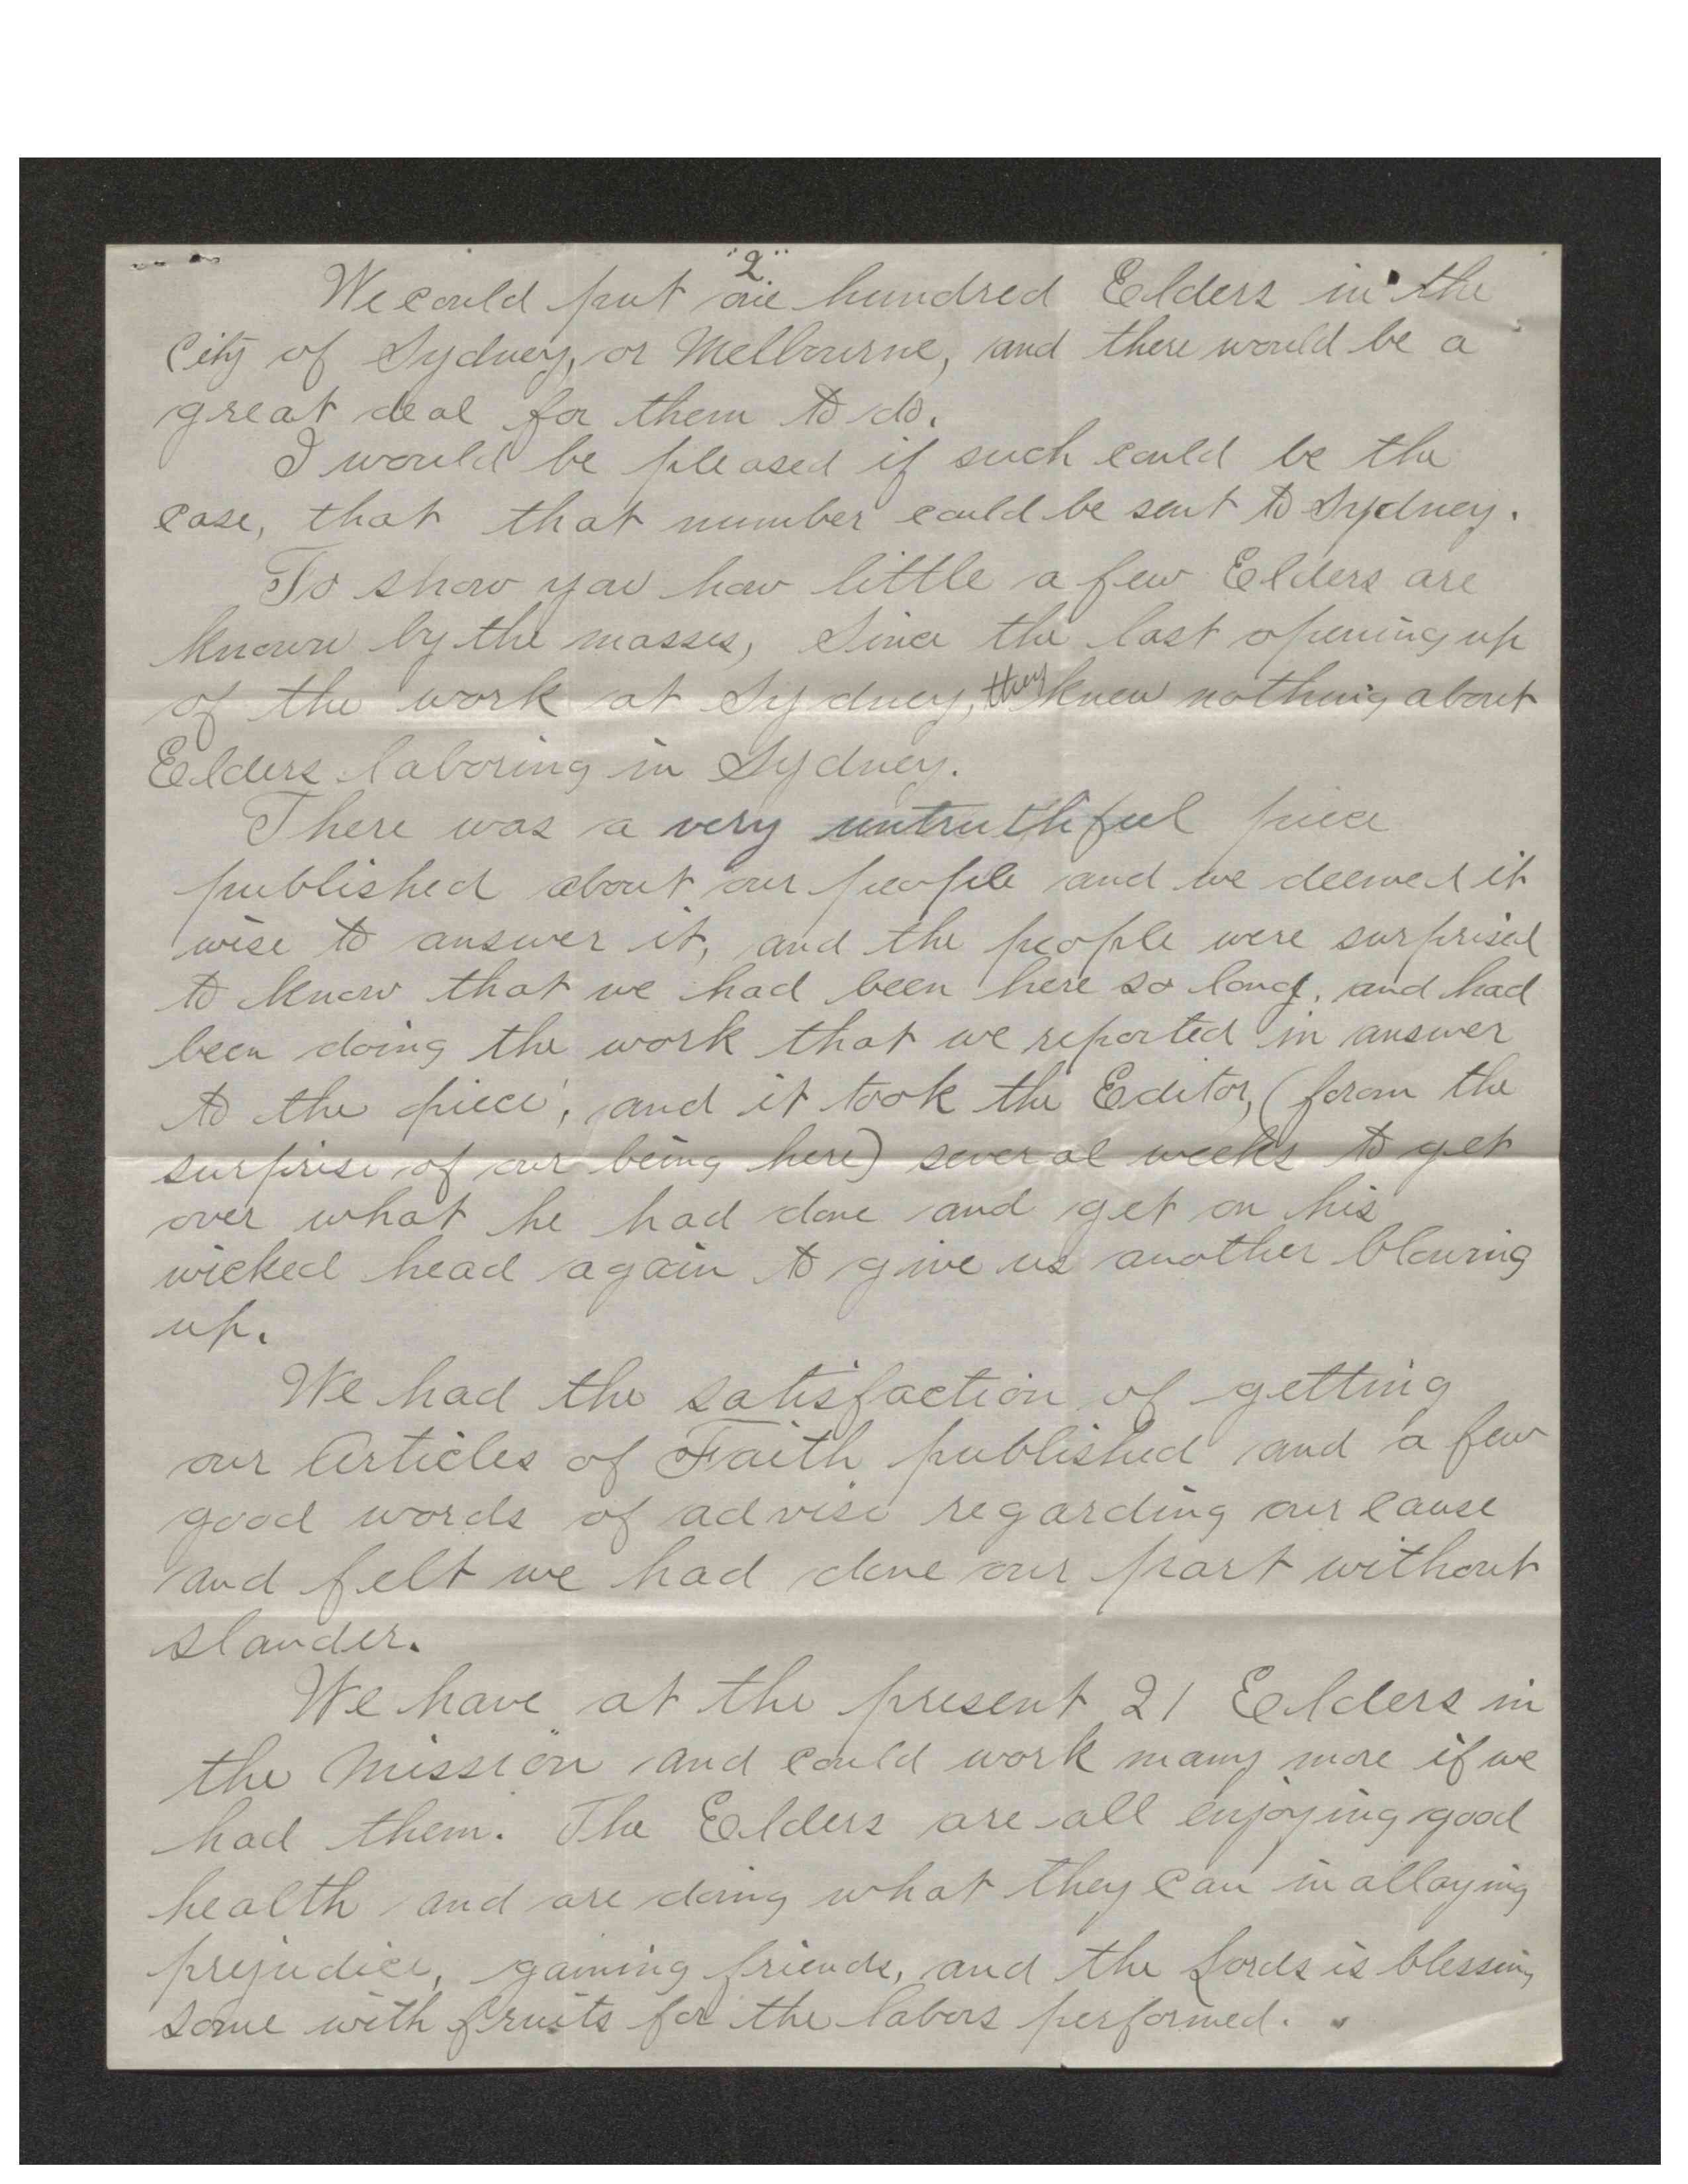 "2"
We could put one hundred Elders in the
City of Sydney, or Melbourne, and there would be a
great deal for them to do.
I would be pleased if such could be the
case, that that number could be sent to Sydney.
To show you how little a few Elders are
known by the masses, Since the last opening up
of the work at Sydney, they knew nothing about
Elders laboring in Sydney.
There was a very untruthful piece
published about our people and we deemed it
wise to answer it, and the people were surprised
to know that we had been here so long, and had
been doing the work that we reported in answer
to the piece, and it took the Editor, (from the
surprise of our being here) several weeks to get
over what he had done and get on his
wicked head again to give us another blowing
up.
We had the satisfaction of getting
our Articles of Faith published and a few
good words of advise regarding our cause
and felt we had done our part without
slander.
We have at the present 21 Elders in
the Mission and could work many more if we
had them. The Elders are all enjoying good
health and are doing what they can in allaying
prejudice, gaining friends, and the Lords is blessing
some with fruits for the labors performed.